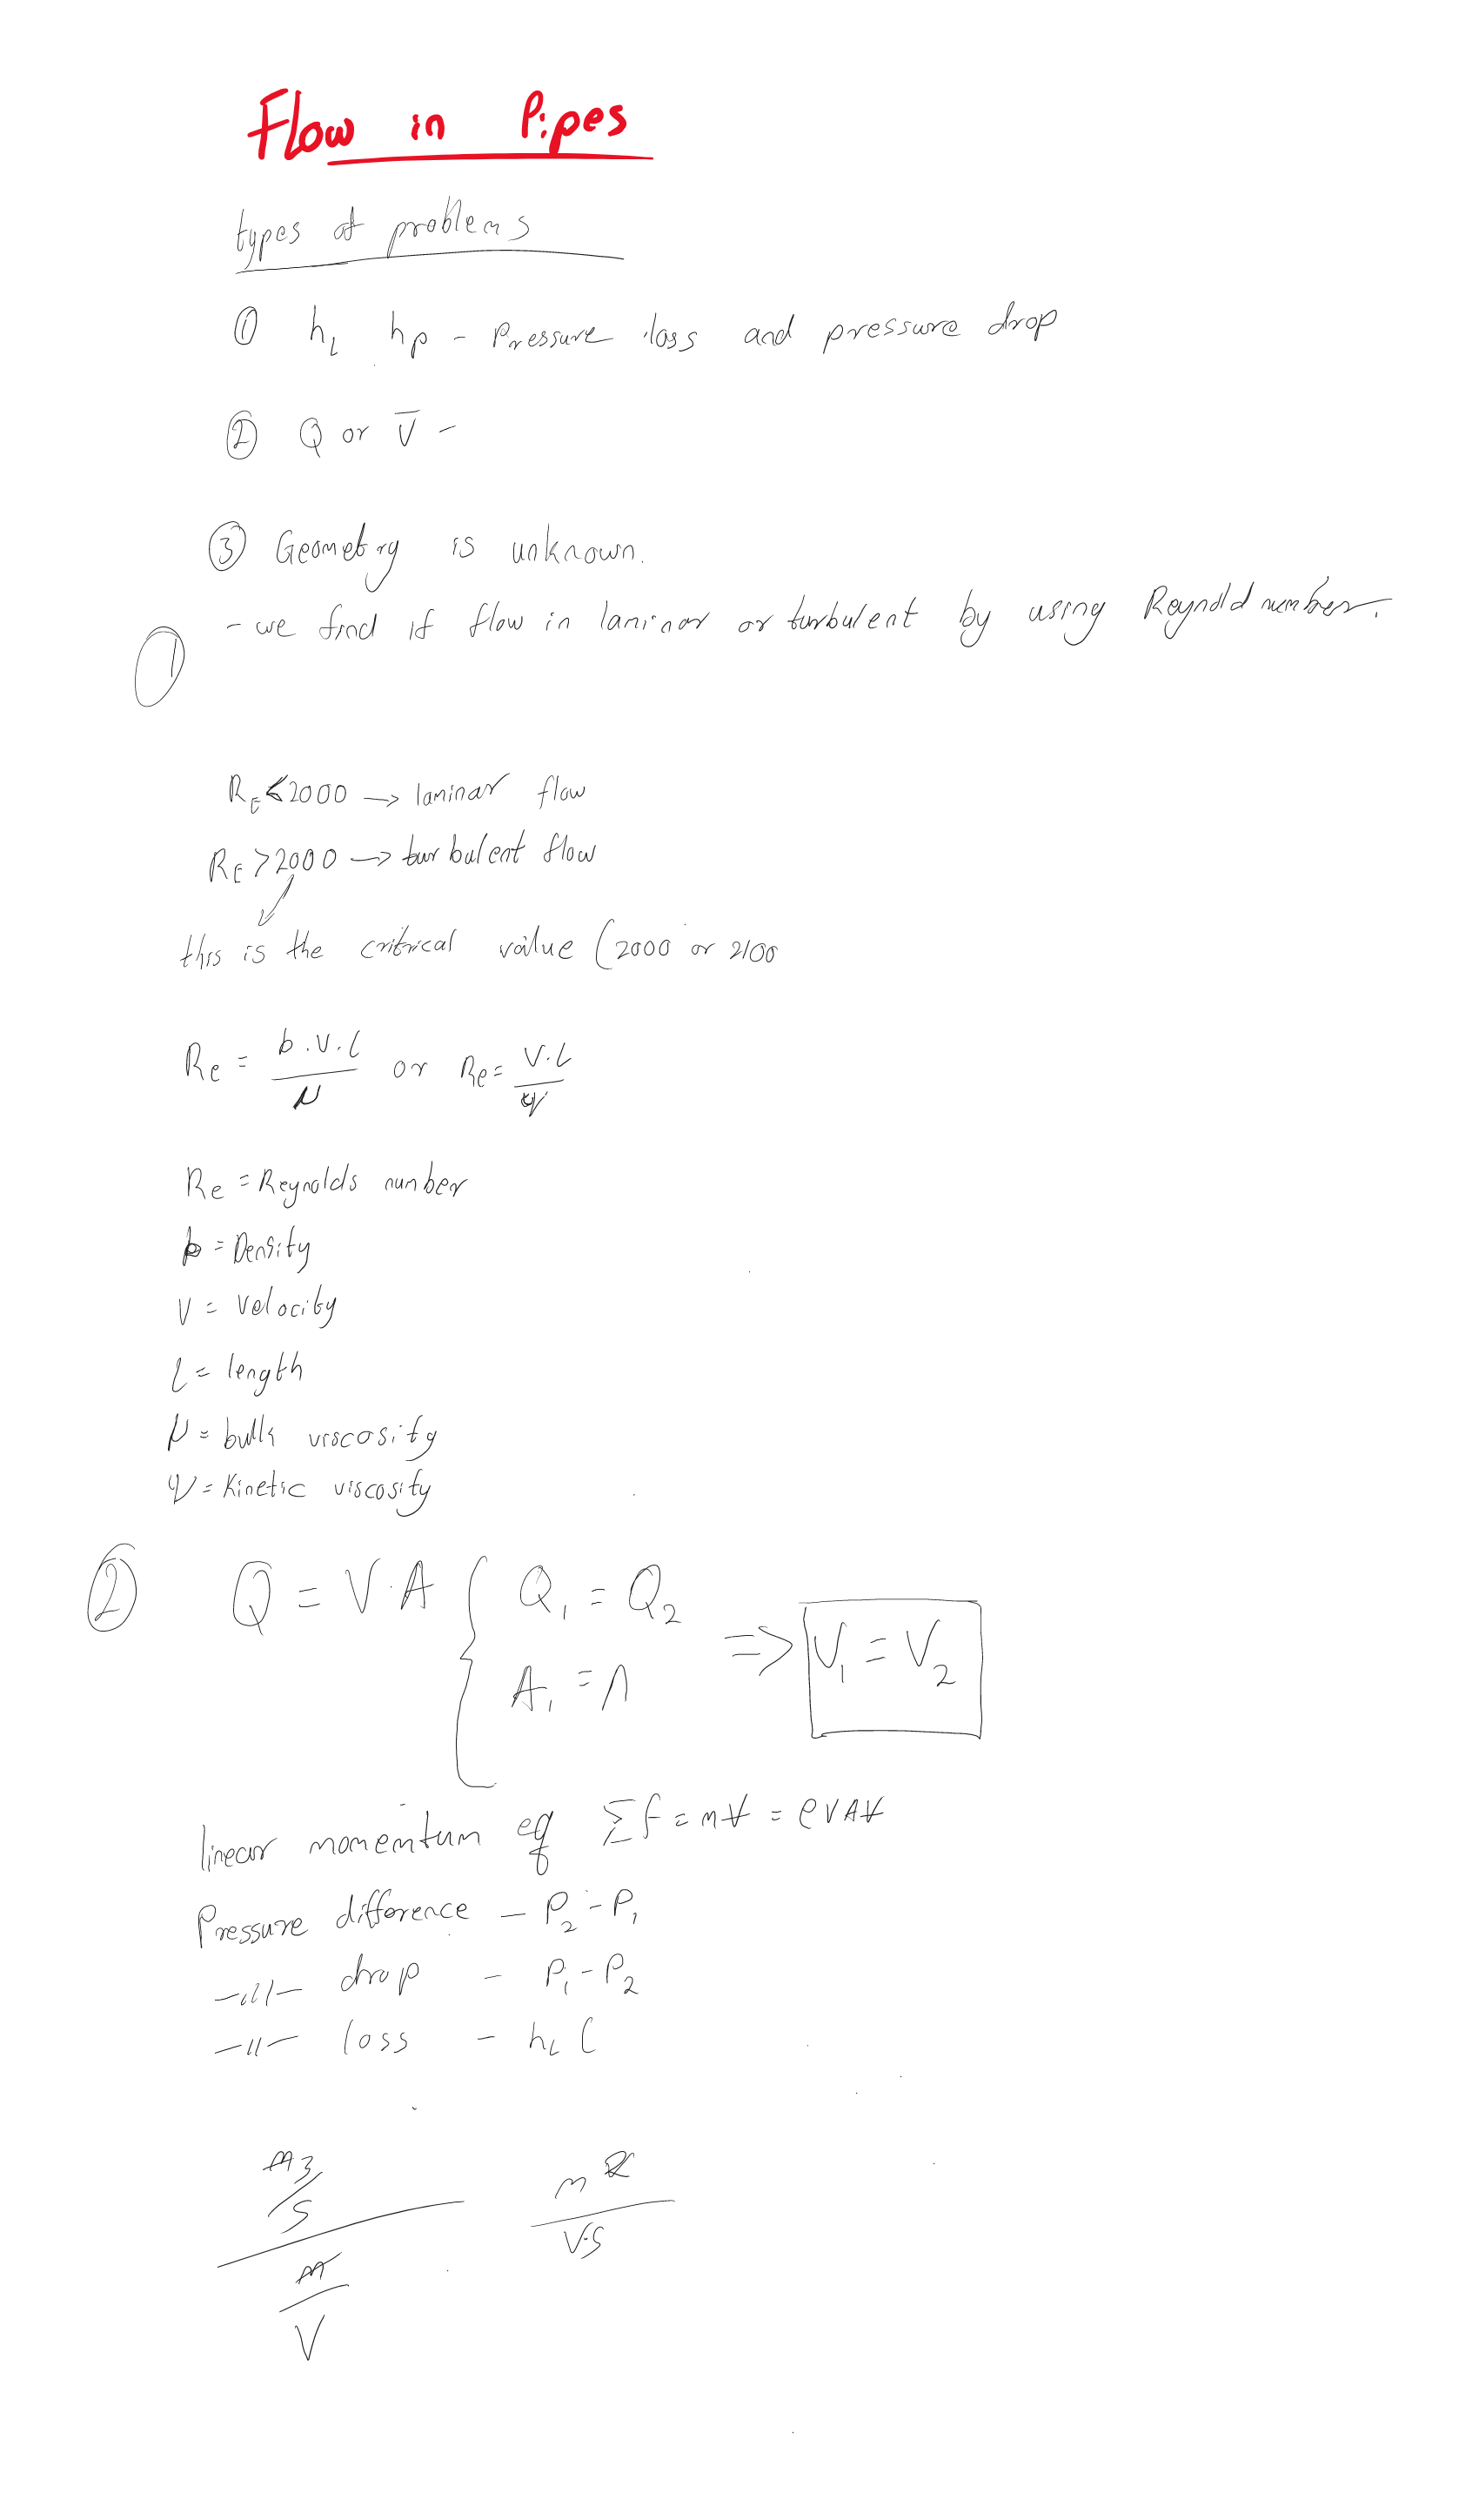 Flow in Pipes
types of problems
① h_L h_p - Pressure loss and pressure drop
② Q or V̅ -
③ Geometry is unknown.
① - we find if flow in laminar or turbulent by using Reynold number.
R_E < 2000 → laminar flow
R_E > 2000 → turbulent flow
this is the critical value (2000 or 2100
Re = ρ.V.L / μ or Re = V.L / ν
Re = Reynolds number
ρ = Density
V = Velocity
L = length
μ = bulk viscosity
ν = Kinetic viscosity
② Q = V.A { Q₁ = Q₂ ⇒ V₁ = V₂
A₁ = Λ
linear momentum eq Σf = mV = ρVAV
Pressure difference - P₂-P₁
-//- drop - P₁-P₂
-//- loss - h_L (
m3/s / m/V m2 / V.S